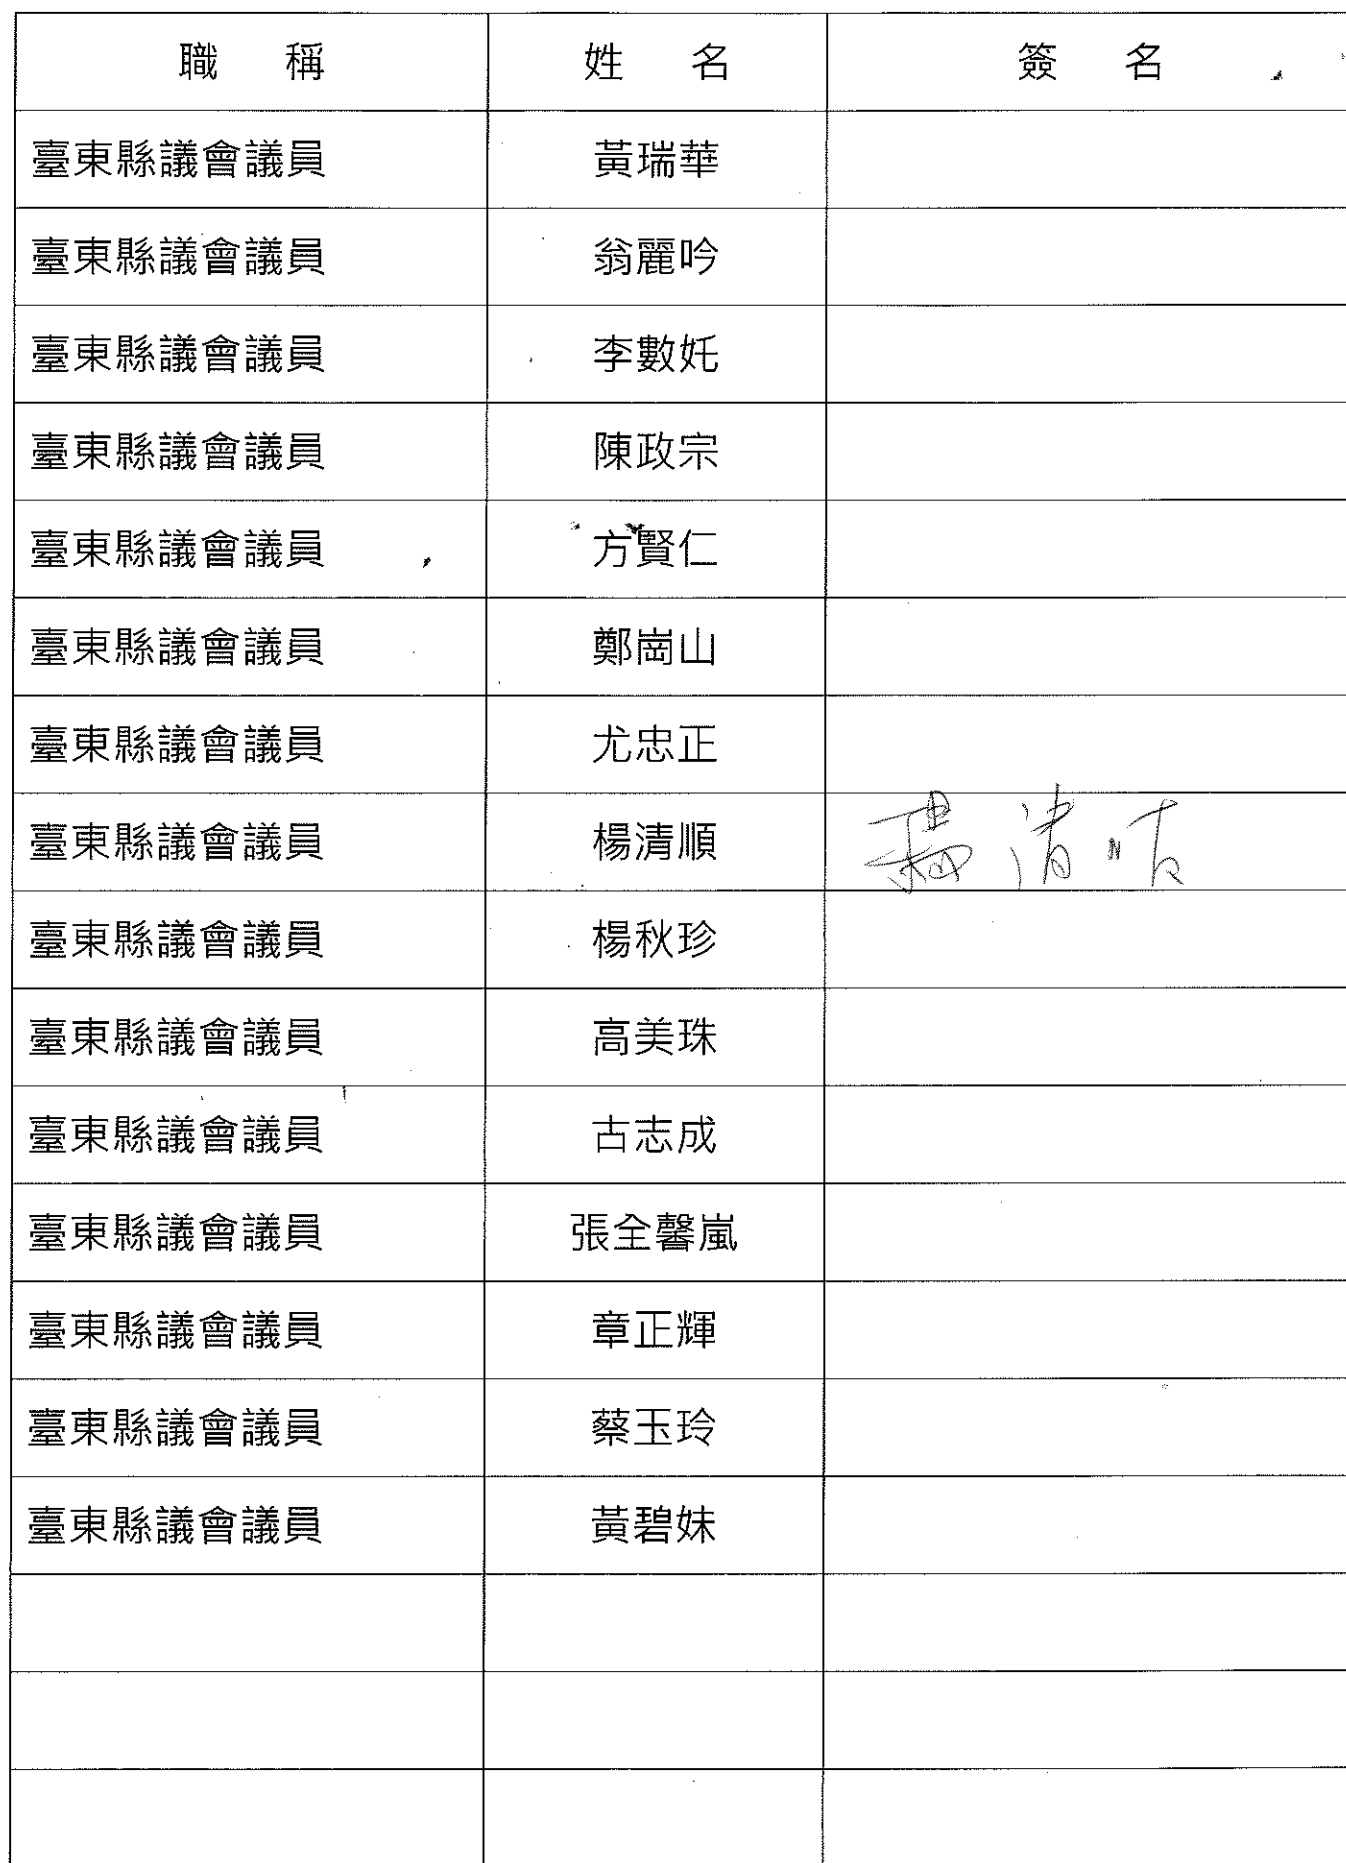 職 稱 姓 名 簽 名
臺東縣議會議員 黃瑞華
臺東縣議會議員 翁麗吟
臺東縣議會議員 李數奼
臺東縣議會議員 陳政宗
臺東縣議會議員 方賢仁
臺東縣議會議員 鄭崗山
臺東縣議會議員 尤忠正
臺東縣議會議員 楊清順 楊清順
臺東縣議會議員 楊秋珍
臺東縣議會議員 高美珠
臺東縣議會議員 古志成
臺東縣議會議員 張全馨嵐
臺東縣議會議員 章正輝
臺東縣議會議員 蔡玉玲
臺東縣議會議員 黃碧妹